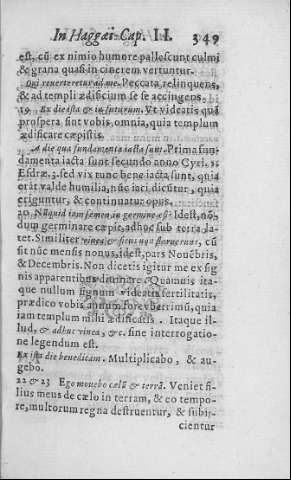 In Haggæi Cap. II. 349
est. cū ex nimio humore pallescunt culmi
& grana quasi in cinerem vertuntur.
Qui reverteretur ad me. Peccata relinquens,
& ad templi ædificium se se accingens.
19 Ex die ista & in futurum. Vt videatis quā
prospera sint vobis omnia, quia templum
ædificare cœpistis.
A die qua fundamenta iacta sunt. Prima fun-
damenta iacta sunt secundo anno Cyri. 1.
Esdræ 3. sed vix tunc bene iacta sunt, quia
erāt valde humilia, nūc iaci dicūtur, quia
eriguntur, & continuatur opus.
20 Nūquid iam semen in germine est? Idest, nō-
dum germinare cæpit, adhuc sub terra la-
tet. Similiter vinea, & ficus non floruerunt, cū
sit nūc mensis nonus, idest, pars Novēbris,
& Decembris. Non dicetis igitur me ex sig-
nis apparentibus divinare. Quamuis ita-
que nullum signum videatis fertilitatis,
prædico vobis annum fore vberrimū, quia
iam templum mihi ædificatis. Itaque il-
lud, & adhuc vinea, &c. sine interrogatio-
ne legendum est.
Ex ista die benedicam. Multiplicabo, & au-
gebo.
22 & 23 Ego movebo cœlū & terrā. Veniet fi-
lius meus de cælo in terram, & eo tempo-
re, multorum regna destruentur, & subij-
cientur